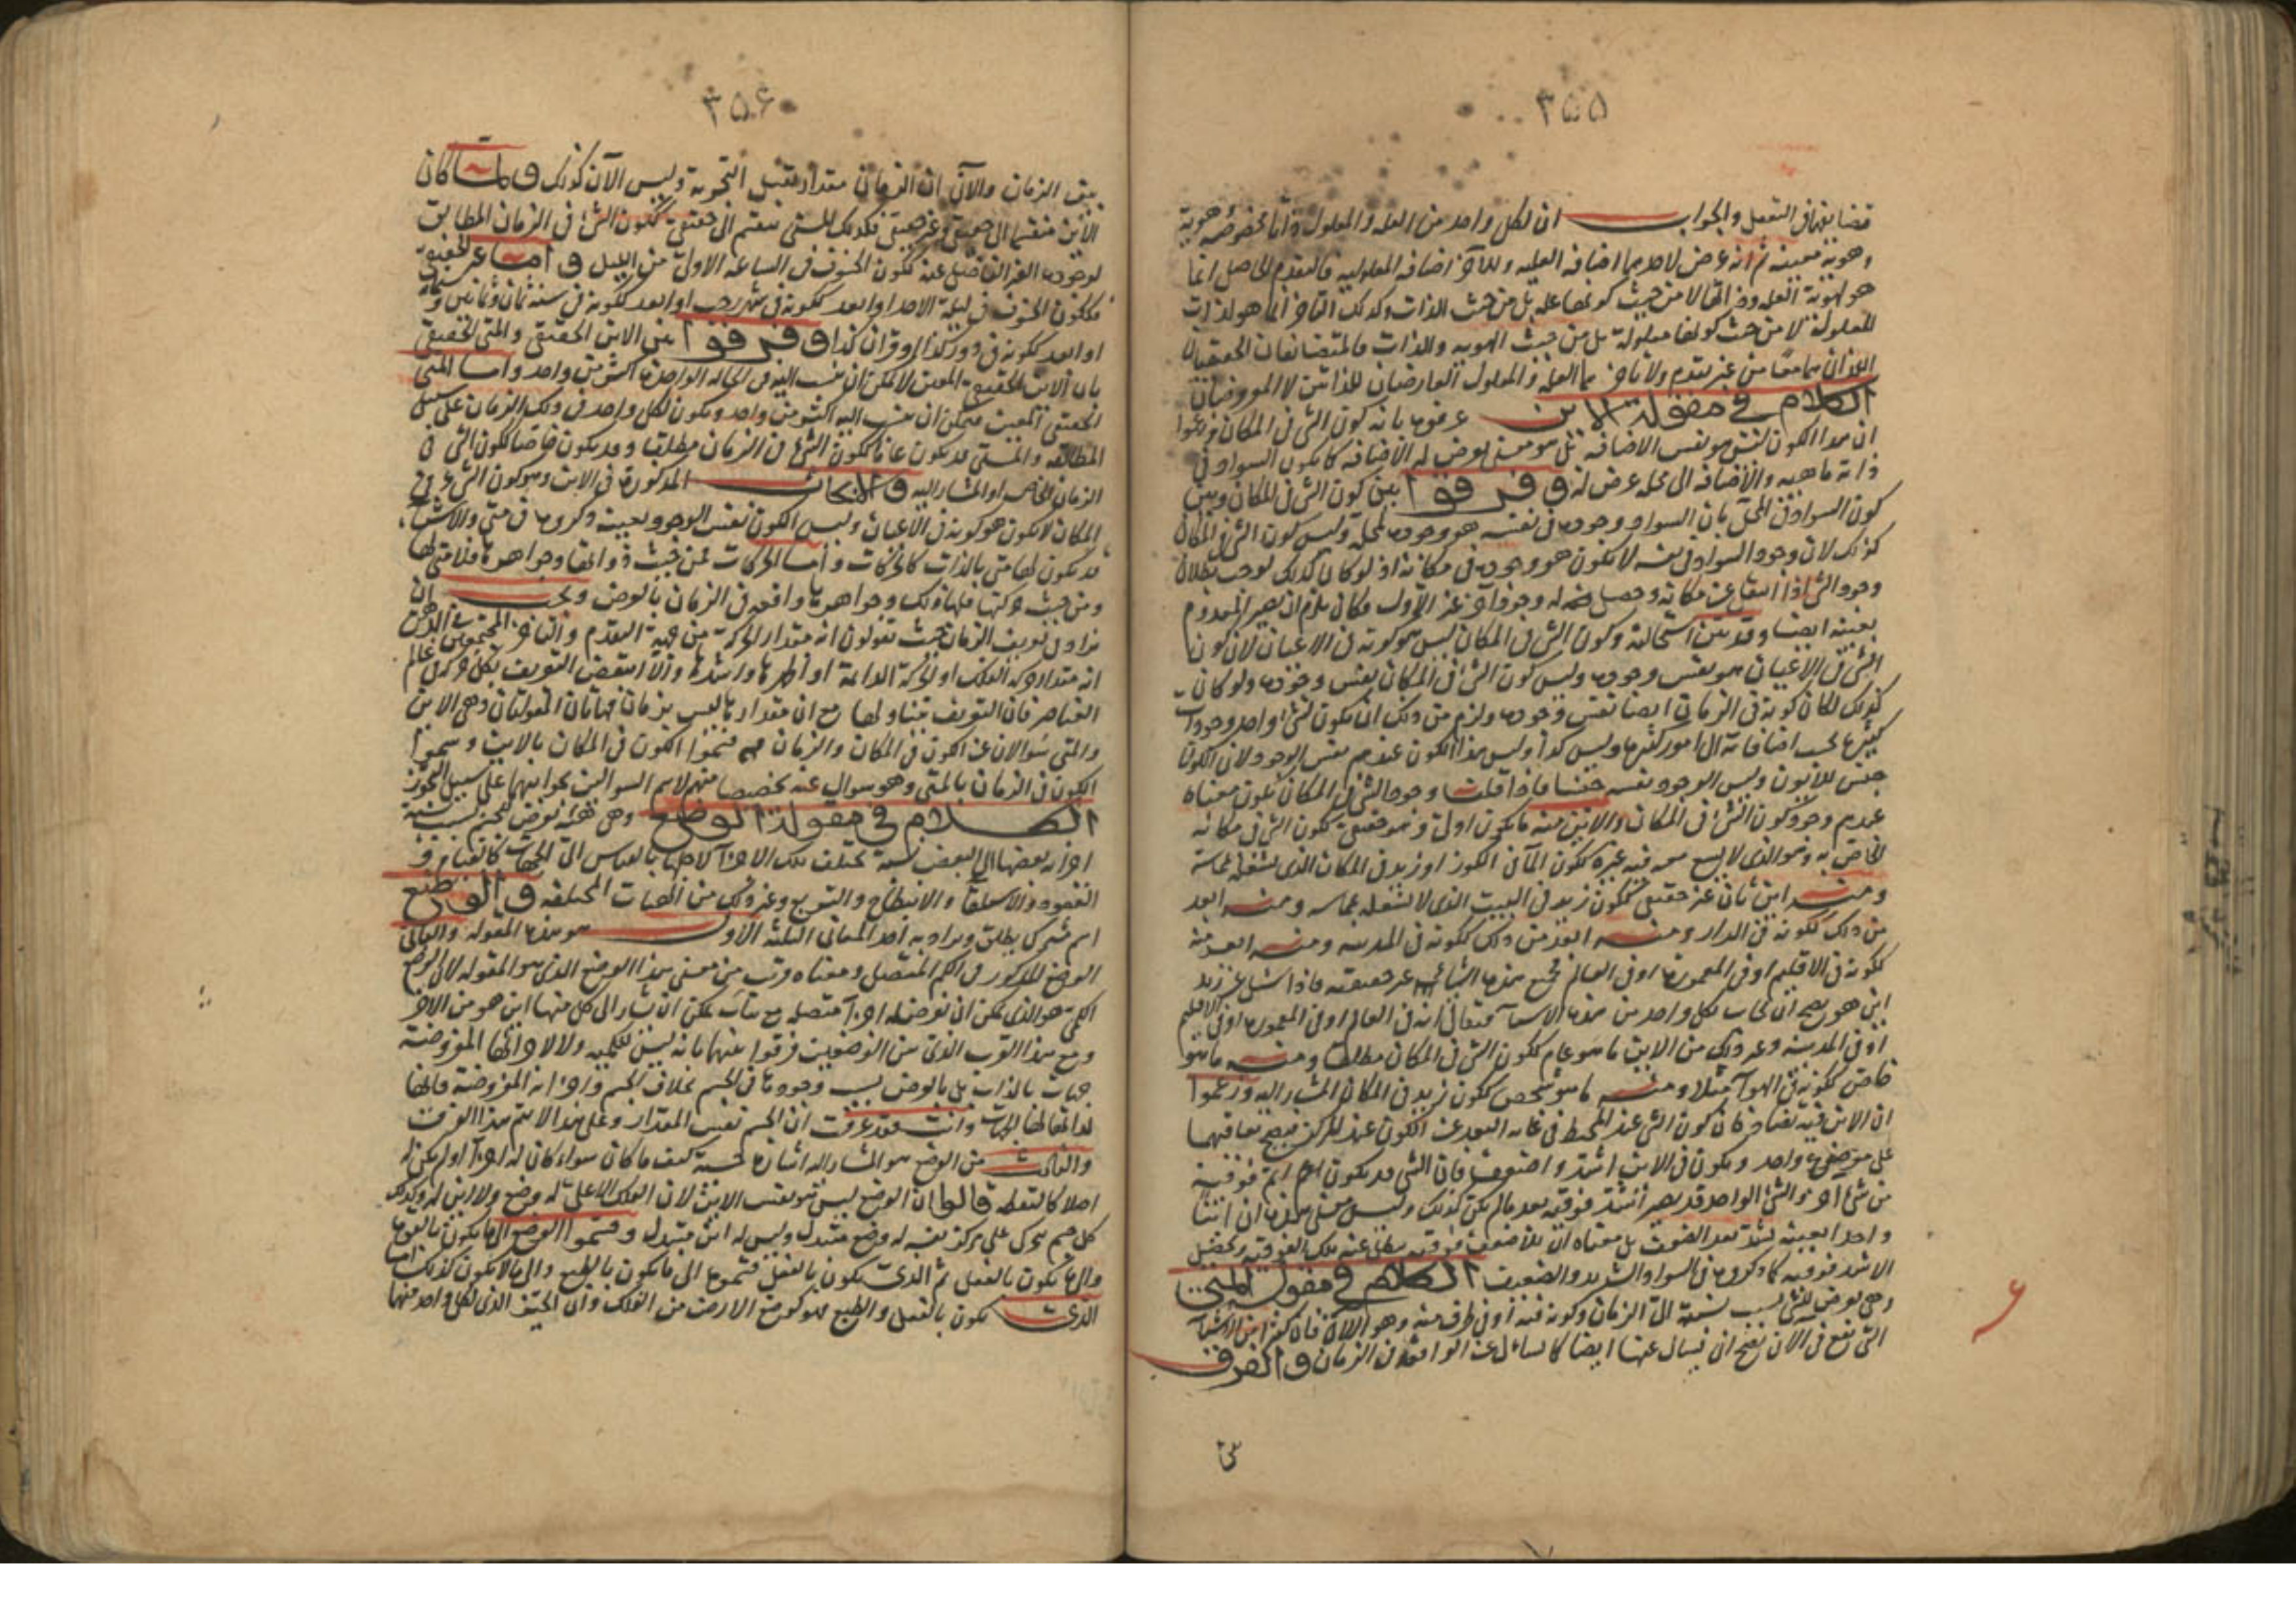 ٣٥٥
فضايفهما في التعقل والجواب ان لكل واحد من العله والمعلول ذاتا مخصوصه هوية
وهوية معينه ثم انه عرض لاحدهما اضافه العليه وللآخر اضافه المعلوليه فالتقدم الحاصل انما
هو لهوية العله وذاتها لا من حيث كونها عله بل من حيث الذات وكذلك التاخر انما هو لذات
المعلول لا من حيث كونها معلولة بل من حيث الهويه والذات فالمتضايفان الحقيقيان
اللذان هما معا من غير تقدم ولا تاخر هما العله والمعلول العارضان للذاتين لا المعروضان
الكلام في مقولة الاين عرفوه بانه كون الشئ في المكان وزعموا
ان هذا الكون ليس هو نفس الاضافه بل هو معنى يعرض له الاضافه كما يكون السواد في
ذاته ماهيه والاضافه الى محله عرض له وفرقوا بين كون الشئ في المكان وبين
كون السواد في المحل بان السواد وجوده في نفسه هو وجوده لمحله وليس كون الشئ في المكان
كذلك لان وجود السواد في نفسه لا يكون هو وجوده في مكانه اذ لو كان كذلك لوجب بطلان
وجود الشئ اذا انتقل عن مكانه وحصل له وجود آخر غير الاول فكان يلزم ان يصير المعدوم
بعينه ايضا وقد تبين استحالته وكون الشئ في المكان ليس هو كونه في الاعيان لان كون
الشئ في الاعيان هو نفس وجوده وليس كون الشئ في المكان نفس وجوده ولو كان
كذلك لكان كونه في الزمان ايضا نفس وجوده ولزم من ذلك ان يكون لشئ واحد وجودات
كثيره بحسب اضافاته الى امور كثيره وليس كذا وليس هذا الكون عندهم نفس الوجود لان الكون
جنس للايون وليس الوجود نفسه جنسا فاذا قلت وجود الشئ في المكان يكون معناه
عندهم وجود كون الشئ في المكان والاين منه ما يكون اولى وهو حقيقى ككون الشئ في مكانه
الخاص به وهو الذى لا يسع معه فيه غيره ككون الماء في الكوز او زيد في المكان الذى يشغله بمماسة
ومنه اين ثان غير حقيقى ككون زيد في البيت الذى لا يشغله بمماسه ومنه ابعد
من ذلك ككونه في الدار ومنه ابعد من ذلك ككونه في المدينه ومنه ابعد منه
ككونه في الاقليم او في المعموره او في العالم فجميع هذه الثانى غير حقيقيه فاذا سئل عن زيد
اين هو يصح ان يجاب بكل واحد من هذه الاسماء فيقال انه في العالم او في المعموره او في الاقليم
او في المدينه وغير ذلك من الاين ما هو عام ككون الشئ في المكان مطلقا ومنه ما هو
خاص ككونه في الهوآ مثلا ومنه ما هو شخص ككون زيد في المكان المشار اليه وزعموا
ان الاين فيه تضاد فان كون الشئ عند المحيط في غايه البعد عن الكون عند المركز فيصح تعاقبهما
على موضوع واحد ويكون في الاين اشد واضعف فان الشئ قد يكون اتم فوقية
من شئ آخر والشئ الواحد قد يصير اشد فوقيه بعد ما لم يكن كذلك وليس معنى هذه ان اينا
واحدا بعينه يشتد بعد الضعف بل معناه ان الاضعف فوقيه يبطل عنه تلك الفوقيه ويحصل
الاشد فوقيه كما ذكروه في السواد الشديد والضعيف الكلام في مقولة المتى
وهى يعرض للشئ بسبب نسبته الى الزمان وكونه فيه او في طرف منه وهو الان فان كثيرا من الاشيآ
التى تقع في الان يصح ان يسال عنها ايضا كما يسال عن الواقعة في الزمان والفرق
٣٥٦
بين الزمان والآن ان الزمان مقدار يقبل التجزية وليس الآن كذلك ولما كان
الاين منقسما الى حقيقى وغير حقيقى فكذلك المتى ينقسم الى حقيقى ككون الشئ في الزمان المطابق
لوجوده الغير الفاضل عنه ككون الخسوف في الساعه الاولى من الليل واما غير الحقيقى
فككون الخسوف في ليلة الاحد او ابعد ككونه في شهر رجب او ابعد ككونه في سنة ثمان وثمانين
او ابعد ككونه في دور كذا او قران كذا وفرقوا بين الاين الحقيقى والمتى الحقيقى
بان الاين الحقيقى المعين لا يمكن ان ينسب اليه في الحاله الواحده اكثر من واحد واما المتى
الحقيقى المعين فيمكن ان ينسب اليه اكثر من واحد ويكون لكل واحد في ذلك الزمان على سبيل
المطابقه والمتى قد يكون عاما ككون الشئ في الزمان مطلقا وقد يكون خاصا ككون الشئ في
الزمان الخاص او المشار اليه والابحاث المذكورة في الاين وهو كون الشئ في
المكان لا يكون هو كونه في الاعيان وليس الكون نفس الوجود بعينه ذكروها في متى والاشيآ
قد يكون لها متى بالذات كالحركات واما المتحركات فمن حيث ذواتها وجواهرها فلا متى لها
ومن حيث حركتها فلها ذلك وجواهرها واقعه في الزمان بالعرض ويجب ان
يزاد في تعريف الزمان حيث تقولون انه مقدار الحركة من جهة التقدم والتاخر المجتمعين في الذهن
انه مقدار حركة الفلك او الحركة الدايمة او اظهرها واشدها والا انتقض التعريف بكل حركة في عالم
العناصر فان التعريف يتناولها مع ان مقدارها ليس بزمان فهاتان المقولتان وهى الاين
والمتى سوالان عن الكون في المكان والزمان فهم سموا الكون في المكان بالاين وسموا
الكون في الزمان بالمتى وهو سوال عنه تخصيصا منهم لاسم السوالين بجوابهما على سبيل التجوز
الكلام في مقولة الوضع وهى هيئه تعرض للجسم بسبب نسبة
اجزائه بعضها الى البعض نسبة يختلف تلك الاجزاء لاجلها بالقياس الى الجهات كالقيام و
القعود والاستلقاء والانبطاح والتربع وغير ذلك من الهيئات المختلفه والوضع
اسم مشترك يطلق ويراد به احد المعانى الثلثه الاول هو هذه المقوله والثانى
الوضع المذكور في الكم المتصل ومعناه قريب من معنى هذا الوضع الذى هو المقوله لان الوضع
الكمى هو الذى يمكن ان تفرض له اجزآ متصله مع ثبات يمكن ان يشار الى كل منها اين هو من الاخر
ومع هذا القرب الذى بين الوضعين فرقوا بينهما بانه ليس للكميه ولا لاجزائها المفروضة
جهات بالذات بل بالعرض بسبب وجودها في الجسم بخلاف الجسم واجزائه المفروضة فانها
لذاتها لها الجهات وانت فقد عرفت ان الجسم نفس المقدار وعلى هذا لا يتم هذا الفرق
والثالث من الوضع هو المشار اليه اشارة حسية كيف ما كان سواء كان له اجزآ او لم يكن له
اصلا كالنقطه قالوا ان الوضع ليس هو نفس الاين لان الفلك الاعلى له وضع ولا اين له وكذلك
كل جسم يتحرك على مركز نفسه له وضع متبدل وليس له اين متبدل وقسموا الوضع الى ما يكون بالقوة
والى ما يكون بالفعل ثم الذى يكون بالفعل قسموه الى ما يكون بالطبع والى ما لا يكون كذلك اما
الذى يكون بالفعل والطبع فهو كوضع الارض من الفلك وان الحيز الذى لكل واحد منهما